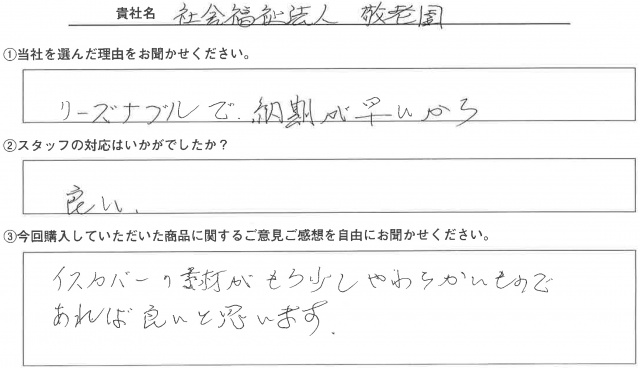 貴社名 社会福祉法人 敬老園
①当社を選んだ理由をお聞かせください。
リーズナブルで、納期が早いから
②スタッフの対応はいかがでしたか？
良い、
③今回購入していただいた商品に関するご意見ご感想を自由にお聞かせください。
イスカバーの素材がもう少しやわらかいもので
あれば良いと思います。